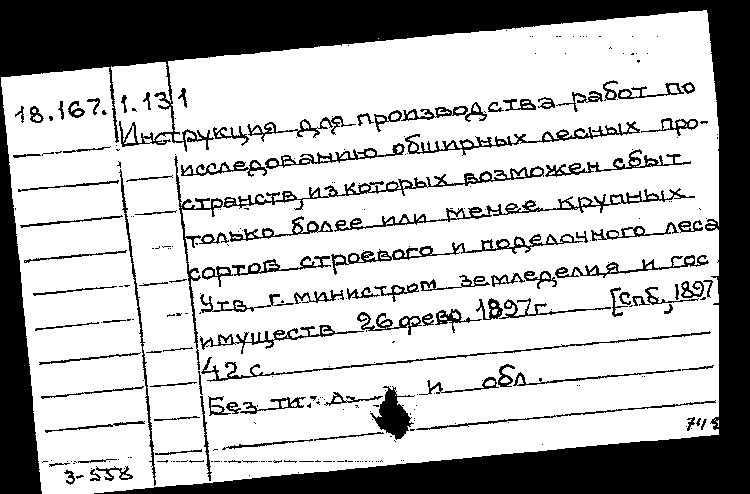 18.167.1.131
Инструкция для производства работ по
исследованию обширных лесных про-
странств, из которых возможен сбыт
только более или менее крупных
сортов строевого и поделочного леса
Утв. г. министром земледелия и гос
имуществ 26 февр. 1897 г. [Спб., 1897]
42 с.
Без тит. л. и обл.
3-558